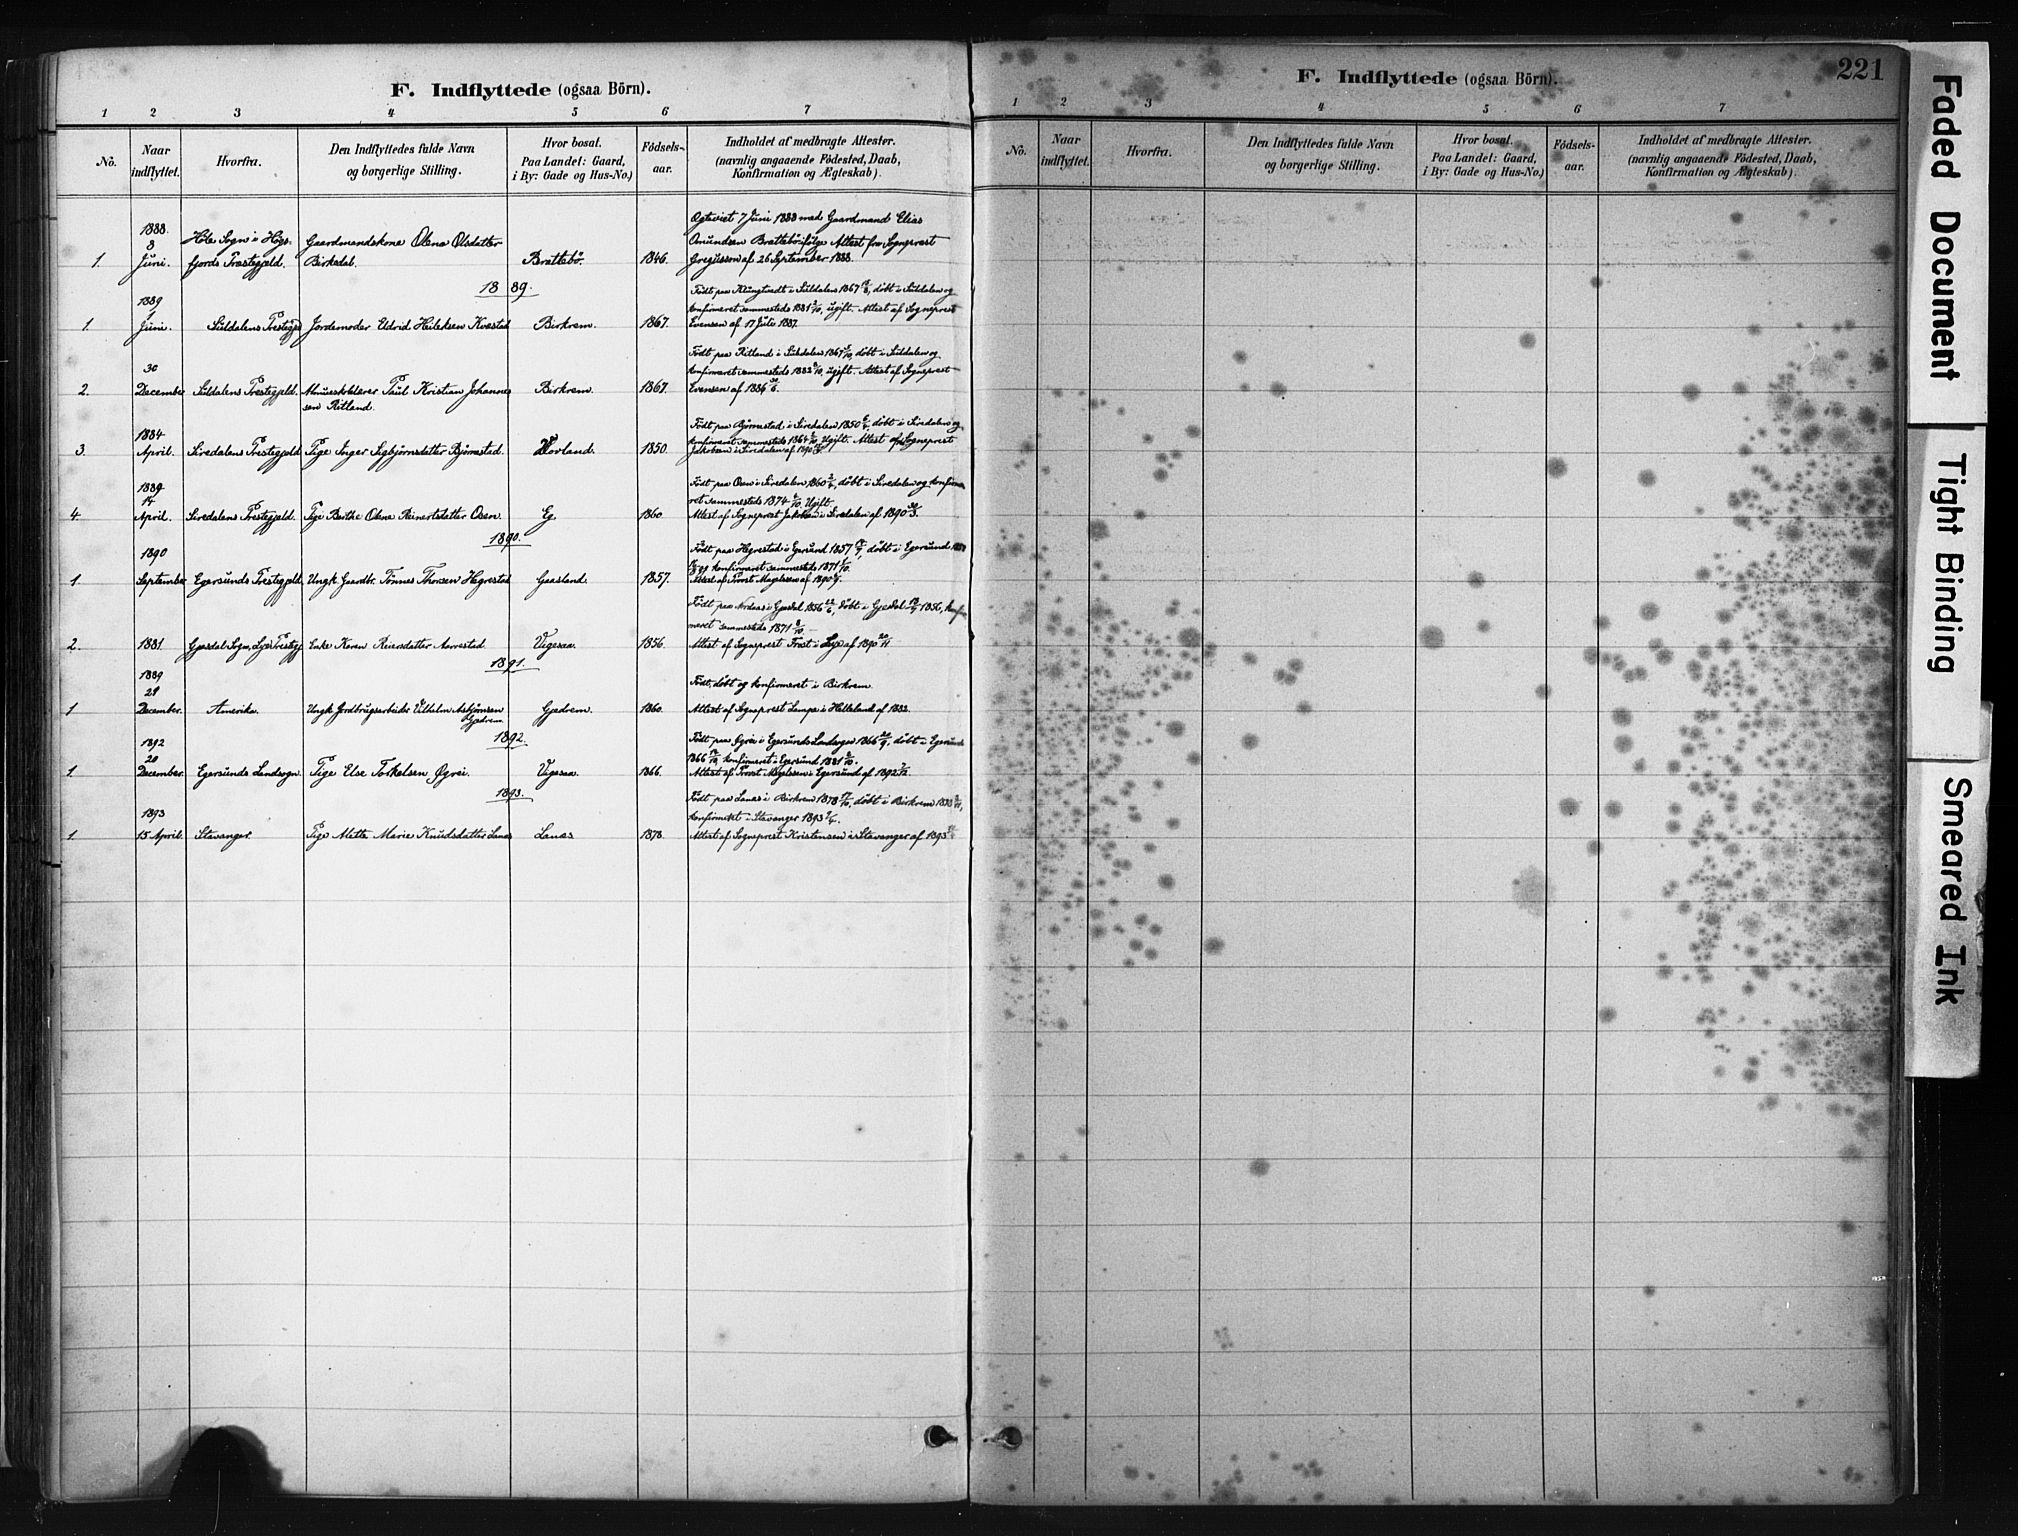 F. Indflyttede (ogsaa Börn).
1 2 3 4 5 6 7
No.
Naar indflyttet.
Hvorfra.
Den Indflyttedes fulde Navn og borgerlige Stilling.
Hvor bosat. Paa Landet: Gaard, i By: Gade og Hus-No.)
Fødsels-aar.
Indholdet af medbragte Attester. (navnlig angaaende Fødested, Daab, Konfirmation og Ægteskab).
1. 1888. 8 Juni. Høle Sogn i Høgsfjords Præstegjeld. Gaardmandskone Olena Olsdatter Birkedal. Brattebö. 1846.
Ægteviet 7 Juni 1888 med Gaardmand Elias
Omundsen Brattebö ifölge Attest fra Sogneprest
Gregussen af 26 September 1888.
1889.
1. 1889 Juni. Suldalens Prestegjeld Jordemoder Eldrid Heileksen Kvæstad Birkrem. 1867.
i Suldalen 1867, döbt i Suldalen og
konfirmeret sammesteds 1881, ugift. Attest af Sogneprest
Evensen af 17 Juli 1887.
2. 30 December Suldalens Prestegjeld. Almueskolelærer Paul Kristian Johannessen Ritland. Birkrem. 1867.
Födt paa Ritland i Suldalen 1867, döbt i Suldalen og
konfirmeret sammesteds 1882, ugift. Attest af Sogneprest
Evensen af 1886
3. 1884 April. Siredalens Prestegjeld Pige Inger Sigbjørnsdatter Bjørnestad. Hovland. 1850.
Födt paa Bjørnestad i Siredalen 1850, döbt i Siredalen og
konfirmeret sammesteds 1864, Ugift. Attest af Sogneprest
Jakobsen i Siredalen af 1890
4. 1889 14 April. Siredalens Prestegjeld. Pige Berthe Olena Reinertsdatter Osen. Eg. 1860.
Födt paa Osen i Siredalen 1860, döbt i Siredalen og konfirmeret
sammesteds 1874. Ugift.
Attest af Sogneprest Jakobsen i Siredalen af 1890
1890.
1. 1890 September Egersunds Prestegjeld. Ungk. Gaardbr. Tönnes Thorsen Hegrestad Gaasland. 1857.
Födt paa Hegrestad i Egersund 1857, döbt i Egersund
og konfirmeret sammesteds 1871
Attest af Provst Magelssen af 1890
2. 1881. Gjesdal Sogn, Lye Prestegj. Enke Karen Reiersdatter Aarrestad. Vigesaa. 1856.
i Gjesdal 1856, döbt i Gjesdal 1856, konfirmeret
sammesteds 1871
Attest af Sogneprest Frost i Lye af 1890
1891.
1 1889 29 December. Amerika. Ungk. Jordbrugsarbeider Vilhelm Asbjörnsen Gjedrem. Gjedrem. 1860.
Födt, döbt og konfirmeret i Birkrem.
Attest af Sogneprest Lampe i Helleland af 1882.
1892.
1 1892 20 December. Egersunds Landsogn. Pige Else Torkelsen Øgrei. Vigesaa. 1866.
Födt paa Øgrei i Egersunds Landsogn 1866, döbt i Egersund
1866, konfirmeret i Egersund 1881
Attest af Provst Magelssen i Egersund af 1892
1893.
1. 1893 15 April. Stavanger. Pige Mette Marie Knudsdatter Lanæs Lanæs 1878.
Födt paa Lanæs i Birkrem 1878, döbt i Birkrem 1878,
konfirmeret i Stavanger 1893
Attest af Sogneprest Kristensen i Stavanger af 1893
F. Indflyttede (ogsaa Börn).
221
1 2 3 4 5 6 7
No.
Naar indflyttet.
Hvorfra.
Den Indflyttedes fulde Navn og borgerlige Stilling.
Hvor bosat. Paa Landet: Gaard, i By: Gade og Hus-No.)
Fødsels-aar.
Indholdet af medbragte Attester. (navnlig angaaende Fødested, Daab, Konfirmation og Ægteskab).
Faded Document
Tight Binding
Smeared Ink